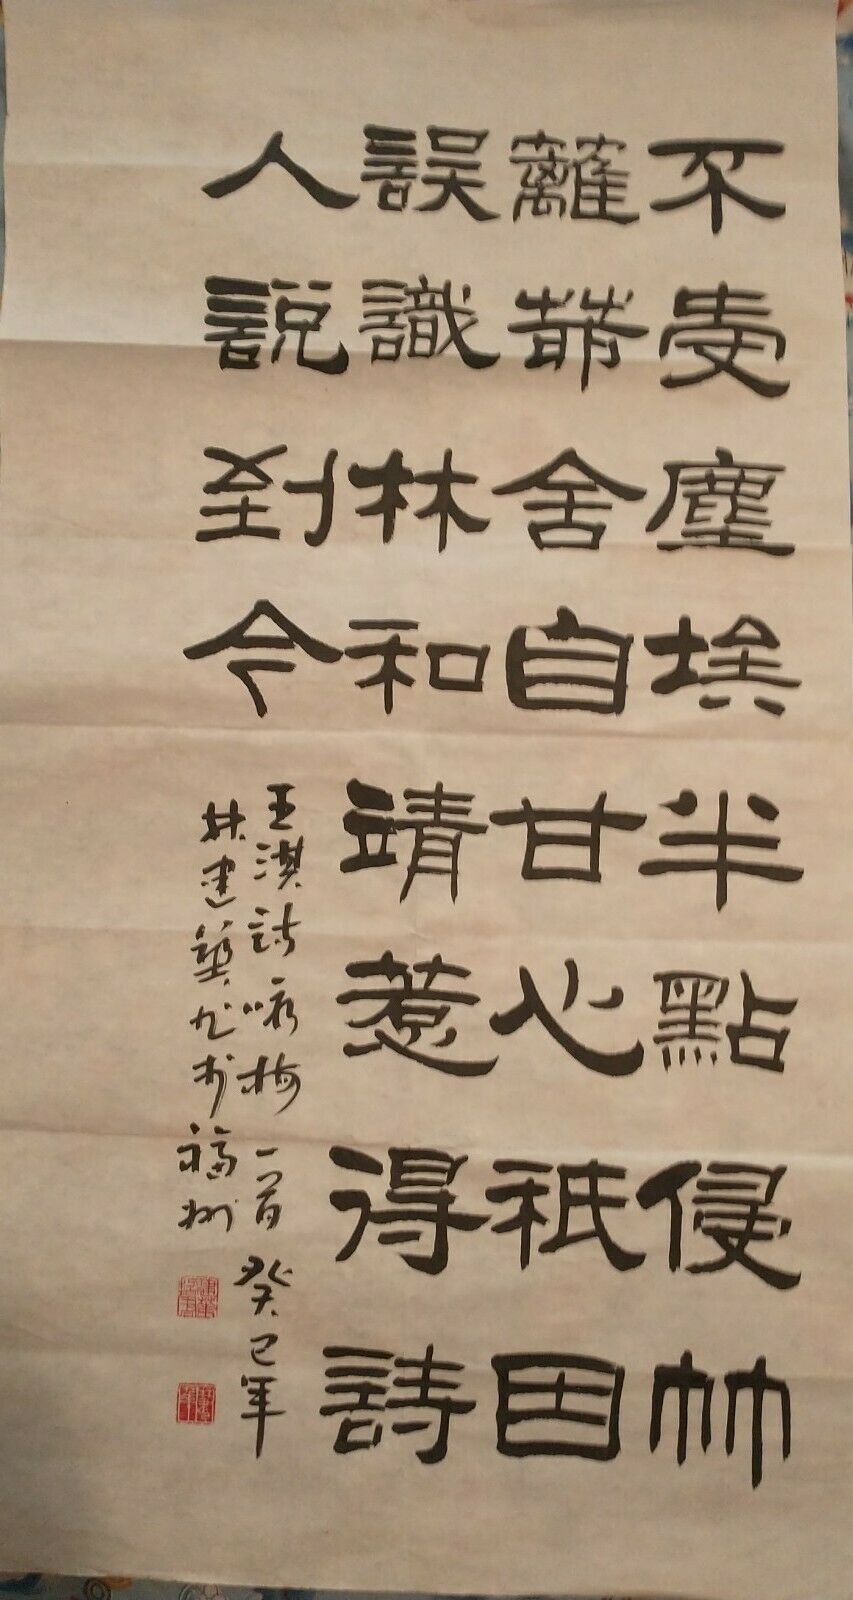 不受塵埃半點侵竹
籬茆舍自甘心祇因
誤識林和靖惹得詩
人說到今
王淇詩咏梅一首癸巳年
林建華書於福州